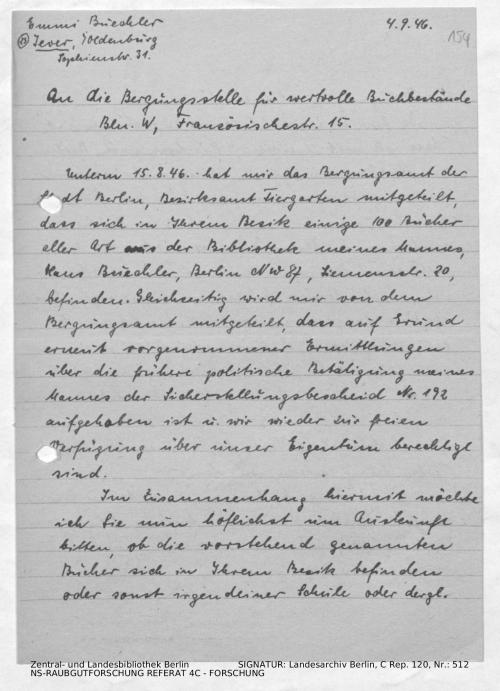 Emmi Buechler
(23) Jever, Oldenburg
Sophienstr. 31.
4.9.46.
154
An die Bergungsstelle für wertvolle Buchbestände
Bln. W, Französischestr. 15.
Unterm 15.8.46. hat mir das Bergungsamt der
Stadt Berlin, Bezirksamt Tiergarten mitgeteilt,
dass sich in Ihrem Besitz einige 100 Bücher
aller Art aus der Bibliothek meines Mannes,
Hans Buechler, Berlin NW 87, Siemensstr. 20,
befinden. Gleichzeitig wird mir von dem
Bergungsamt mitgeteilt, dass auf Grund
erneut vorgenommener Ermittlungen
über die frühere politische Betätigung meines
Mannes der Sicherstellungsbescheid Nr. 192
aufgehoben ist u. wir wieder zur freien
Verfügung über unser Eigentum berechtigt
sind.
Im Zusammenhang hiermit möchte
ich Sie nun höflichst um Auskunft
bitten, ob die vorstehend genannten
Bücher sich in Ihrem Besitz befinden
oder sonst irgendeiner Schule oder dergl.
Zentral- und Landesbibliothek Berlin SIGNATUR: Landesarchiv Berlin, C Rep. 120, Nr.: 512
NS-RAUBGUTFORSCHUNG REFERAT 4C - FORSCHUNG